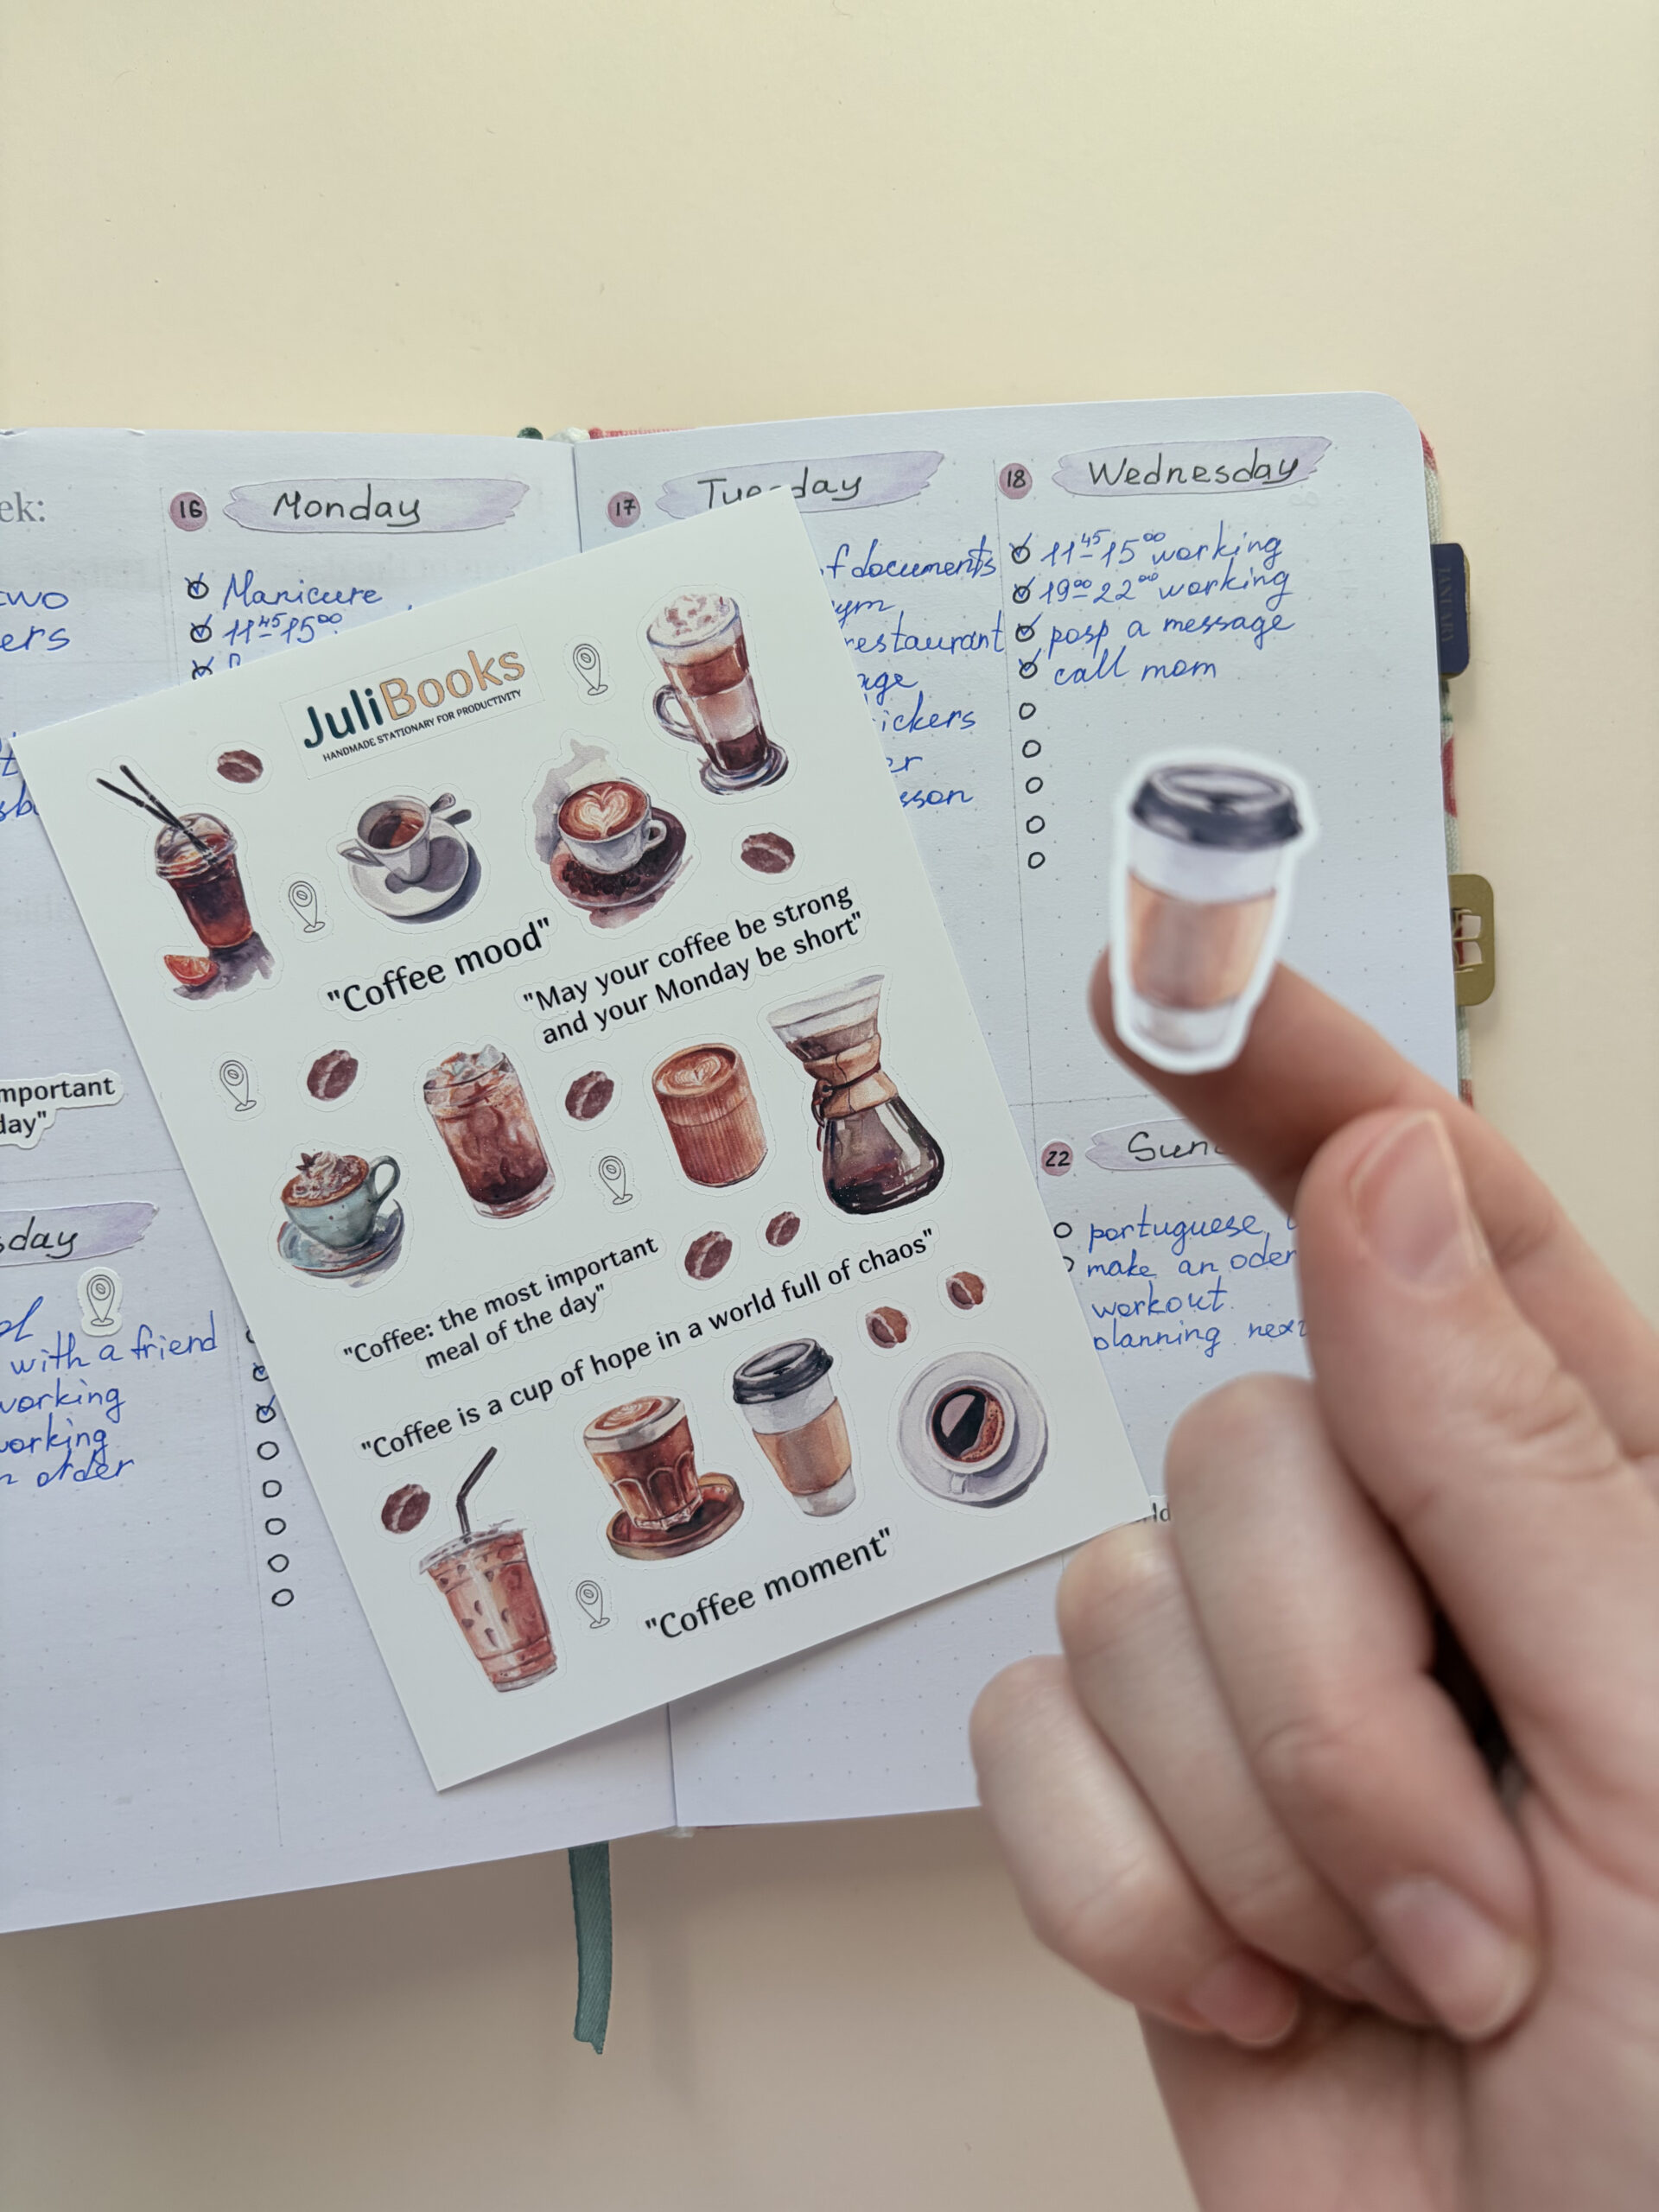 ek:
16 Monday
Manicure
11⁴⁵-15⁰⁰
17
18 Wednesday
f documents
ym
restaurant
age
ickers
er
sson
11⁴⁵-15⁰⁰ working
19⁰⁰-22⁰⁰ working
posp a message
call mom
wo
ers
JuliBooks
HANDMADE STATIONARY FOR PRODUCTIVITY
"Coffee mood"
"May your coffee be strong
and your Monday be short"
"Coffee: the most important
meal of the day"
"Coffee is a cup of hope in a world full of chaos"
"Coffee moment"
mportant
day"
sday
with a friend
working
working
order
22 Sun
portuguese
make an oder
workout
planning next
JANUARY